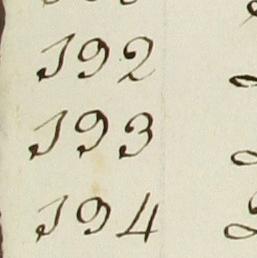 192
193
194